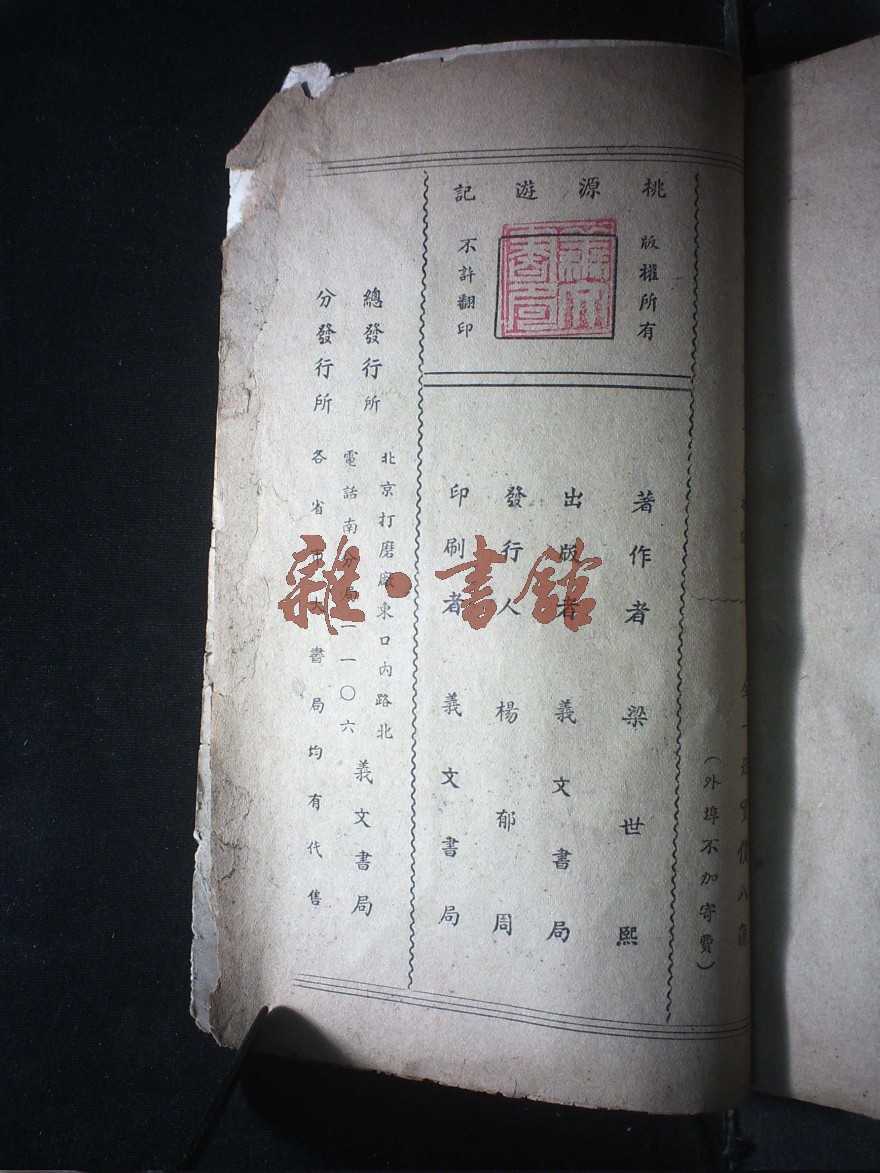 全一册實價八角
(外埠不加寄費)
桃源遊記
版權所有
不許翻印
義文書局
著作者 梁世熙
出版者 義文書局
發行人 楊郁周
印刷者 義文書局
總發行所 北京打磨廠東口內路北 義文書局
電話南分局二一一〇六
分發行所 各省市大書局均有代售
雜·書館